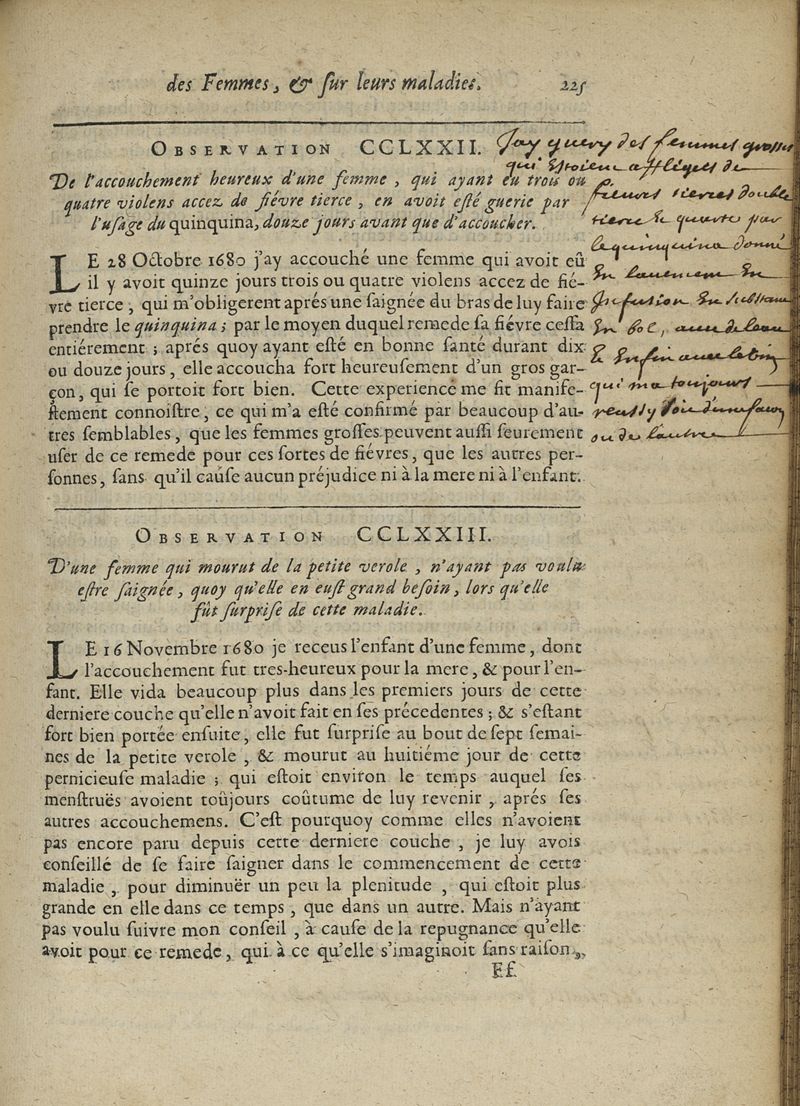 des Femmes, & ſur leurs maladies. 225
OBSERVATION CCLXXII.
De l'accouchement heureux d'une femme, qui ayant eu trois ou
quatre violens accez de fiévre tierce, en avoit eſté guerie par
l'uſage du quinquina, douze jours avant que d'accoucher.
LE 28 Octobre 1680 j'ay accouché une femme qui avoit eû
il y avoit quinze jours trois ou quatre violens accez de fié-
vre tierce, qui m'obligerent aprés une ſaignée du bras de luy faire
prendre le quinquina; par le moyen duquel remede ſa fiévre ceſſa
entiérement; aprés quoy ayant eſté en bonne ſanté durant dix
ou douze jours, elle accoucha fort heureuſement d'un gros gar-
çon, qui ſe portoit fort bien. Cette experience me fit manife-
ſtement connoiſtre, ce qui m'a eſté confirmé par beaucoup d'au-
tres ſemblables, que les femmes groſſes peuvent auſſi ſeurement
uſer de ce remede pour ces ſortes de fiévres, que les autres per-
ſonnes, ſans qu'il cauſe aucun préjudice ni à la mere ni à l'enfant.
Jay guery des femmes grosses
qui Estoient affligées de
fieures tierces double
tierce & quarte par
le quinquina donné
En lauement En
Infusion En substance
En bol, auec de leau
& Enfin auec le vin
qui ma toujours
reussy dune facon
ou de lautre
OBSERVATION CCLXXIII.
D'une femme qui mourut de la petite verole, n'ayant pas voulu
eſtre ſaignée, quoy qu'elle en euſt grand beſoin, lors qu'elle
fût ſurpriſe de cette maladie.
LE 16 Novembre 1680 je receus l'enfant d'une femme, dont
l'accouchement fut tres-heureux pour la mere, & pour l'en-
fant. Elle vida beaucoup plus dans les premiers jours de cette
derniere couche qu'elle n'avoit fait en ſes précedentes; & s'eſtant
fort bien portée enſuite, elle fut ſurpriſe au bout de ſept ſemai-
nes de la petite verole, & mourut au huitiéme jour de cette
pernicieuſe maladie; qui eſtoit environ le temps auquel ſes
menſtruës avoient toûjours coûtume de luy revenir, aprés ſes
autres accouchemens. C'eſt pourquoy comme elles n'avoient
pas encore paru depuis cette derniere couche, je luy avois
conſeillé de ſe faire ſaigner dans le commencement de cette
maladie, pour diminuër un peu la plenitude, qui eſtoit plus
grande en elle dans ce temps, que dans un autre. Mais n'ayant
pas voulu ſuivre mon conſeil, à cauſe de la repugnance qu'elle
avoit pour ce remede, qui à ce qu'elle s'imaginoit ſans raiſon,
Ff